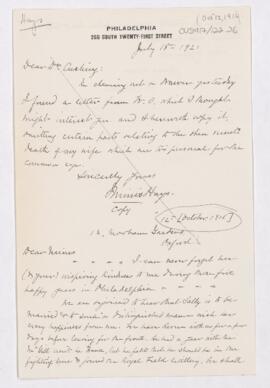 Hays
(Oct 12, 1915)
CUS417/22.26
PHILADELPHIA
266 SOUTH TWENTY-FIRST STREET
July 18th 1921
Dear Dr Cushing:
In cleaning out a drawer yesterday
I found a letter from Dr. O. which I thought
might interest you and I herewith copy it,
omitting certain parts relating to the then recent
death of my wife which are too personal for the
common eye.
Sincerely yours
Minis Hays.
Copy
12 [October 1915]
13, Norham Gardens
Oxford
Dear Minis
I can never forget her
(& your) unfailing kindness to me during our five
happy years in Philadelphia
We are surprised to hear that Sally is to be
married to
many happiness from me. We have Revere with us for a few
days before leaving for the front. He had a year with the
McGill unit in France, but he felt that he should be in the
fighting line & joined the Royal Field Artillery. We shall